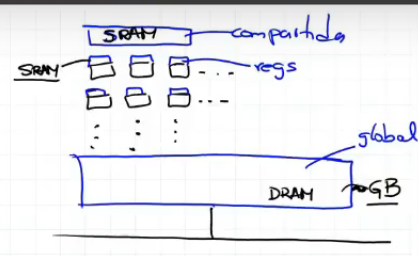 SRAM compartida
SRAM regs
global
DRAM GB